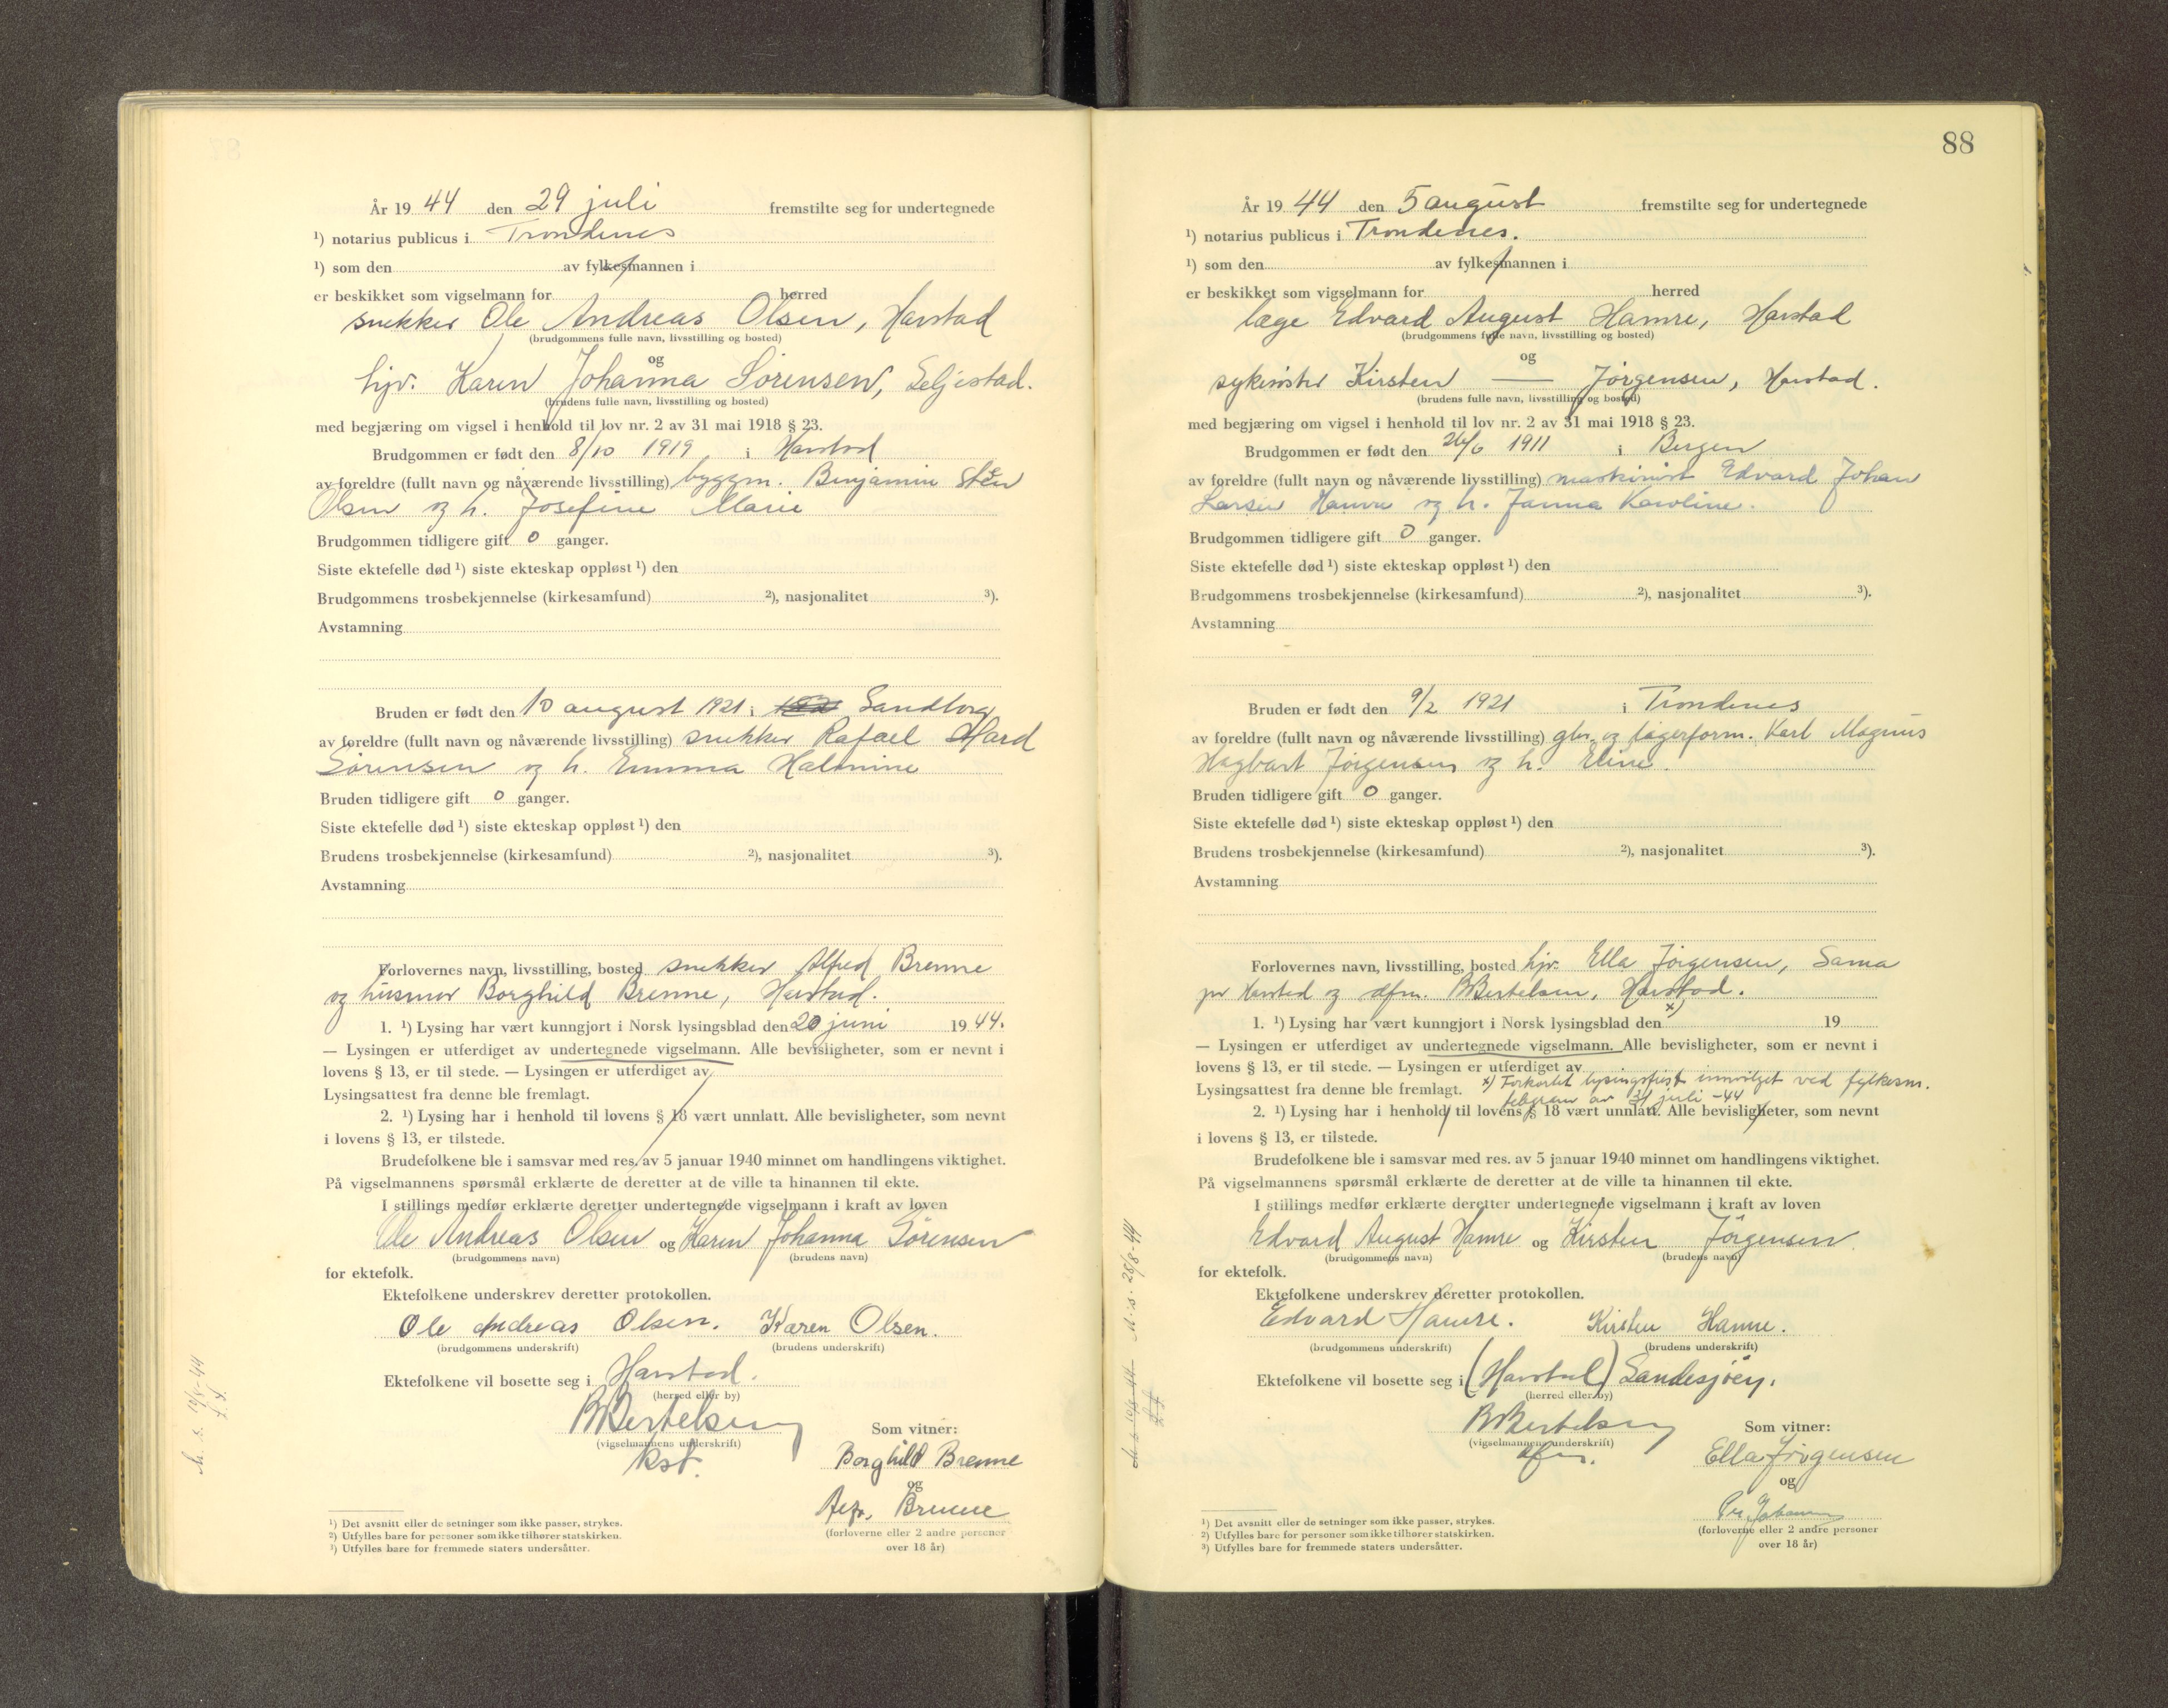 År 19 44 den 29 juli fremstilte seg for undertegnede
¹) notarius publicus i Trondenes
¹) som den av fylkesmannen i
er beskikket som vigselmann for herred
snekker Ole Andreas Olsen, Harstad
(brudgommens fulle navn, livsstilling og bosted)
og
hjv. Karen Johanna Sörensen, Seljestad.
(brudens fulle navn, livsstilling og bosted)
med begjæring om vigsel i henhold til lov nr. 2 av 31 mai 1918 § 23.
Brudgommen er født den 8/10 1919 i Harstad
av foreldre (fullt navn og nåværende livsstilling) byggm. Benjamin Stén
Olsen og h. Josefine Marie
Brudgommen tidligere gift 0 ganger.
Siste ektefelle død ¹) siste ekteskap oppløst ¹) den
Brudgommens trosbekjennelse (kirkesamfund) ²), nasjonalitet ³).
Avstamning
Bruden er født den 10 august 1921 i Sandtorg
av foreldre (fullt navn og nåværende livsstilling) snekker Rafael
Sörensen og h. Emma Halmine
Bruden tidligere gift 0 ganger.
Siste ektefelle død ¹) siste ekteskap oppløst ¹) den
Brudens trosbekjennelse (kirkesamfund) ²), nasjonalitet ³).
Avstamning
Forlovernes navn, livsstilling, bosted snekker Alfred Brenne
og husmor Borghild Brenne, Harstad.
1. ¹) Lysing har vært kunngjort i Norsk lysingsblad den 20 juni 19 44.
— Lysingen er utferdiget av undertegnede vigselmann. Alle bevisligheter, som er nevnt i
lovens § 13, er til stede. — Lysingen er utferdiget av
Lysingsattest fra denne ble fremlagt.
2. ¹) Lysing har i henhold til lovens § 18 vært unnlatt. Alle bevisligheter, som nevnt
i lovens § 13, er tilstede.
Brudefolkene ble i samsvar med res. av 5 januar 1940 minnet om handlingens viktighet.
På vigselmannens spørsmål erklærte de deretter at de ville ta hinannen til ekte.
I stillings medfør erklærte deretter undertegnede vigselmann i kraft av loven
Ole Andreas Olsen og Karen Johanna Sörensen
(brudgommens navn) (brudens navn)
for ektefolk.
Ektefolkene underskrev deretter protokollen.
Ole Andreas Olsen. Karen Olsen.
(brudgommens underskrift) (brudens underskrift)
Ektefolkene vil bosette seg i Harstad.
(herred eller by)
BBertelsen
(vigselmannens underskrift)
kst.
Som vitner:
Borghild Brenne
og
Brenne
(forloverne eller 2 andre personer
over 18 år)
¹) Det avsnitt eller de setninger som ikke passer, strykes.
²) Utfylles bare for personer som ikke tilhører statskirken.
³) Utfylles bare for fremmede staters undersåtter.
M. s. 10/8-44
88
År 19 44 den 5 august fremstilte seg for undertegnede
¹) notarius publicus i Trondenes.
¹) som den av fylkesmannen i
er beskikket som vigselmann for herred
læge Edvard August Hamre, Harstad
(brudgommens fulle navn, livsstilling og bosted)
og
sykesöster Kirsten — Jörgensen, Harstad.
(brudens fulle navn, livsstilling og bosted)
med begjæring om vigsel i henhold til lov nr. 2 av 31 mai 1918 § 23.
Brudgommen er født den 26/6 1911 i Bergen
av foreldre (fullt navn og nåværende livsstilling) maskinist Edvard Johan
Larsen Hamre og h. Janna Karoline.
Brudgommen tidligere gift 0 ganger.
Siste ektefelle død ¹) siste ekteskap oppløst ¹) den
Brudgommens trosbekjennelse (kirkesamfund) ²), nasjonalitet ³).
Avstamning
Bruden er født den 9/2 1921 i Trondenes
av foreldre (fullt navn og nåværende livsstilling) gbr. og lagerform. Karl Magnus
Hagbart Jörgensen og h. Eline.
Bruden tidligere gift 0 ganger.
Siste ektefelle død ¹) siste ekteskap oppløst ¹) den
Brudens trosbekjennelse (kirkesamfund) ²), nasjonalitet ³).
Avstamning
Forlovernes navn, livsstilling, bosted hjv. Ella Jörgensen, Sama
pr Harstad og dfm. BBertelsen, Harstad.
1. ¹) Lysing har vært kunngjort i Norsk lysingsblad den x) 19
— Lysingen er utferdiget av undertegnede vigselmann. Alle bevisligheter, som er nevnt i
lovens § 13, er til stede. — Lysingen er utferdiget av
Lysingsattest fra denne ble fremlagt. x) Forkortet lysingsfrist innvilget ved fylkesm.
telegram av 31 juli -44
2. ¹) Lysing har i henhold til lovens § 18 vært unnlatt. Alle bevisligheter, som nevnt
i lovens § 13, er tilstede.
Brudefolkene ble i samsvar med res. av 5 januar 1940 minnet om handlingens viktighet.
På vigselmannens spørsmål erklærte de deretter at de ville ta hinannen til ekte.
I stillings medfør erklærte deretter undertegnede vigselmann i kraft av loven
Edvard August Hamre og Kirsten Jörgensen
(brudgommens navn) (brudens navn)
for ektefolk.
Ektefolkene underskrev deretter protokollen.
Edvard Hamre. Kirsten Hamre.
(brudgommens underskrift) (brudens underskrift)
Ektefolkene vil bosette seg i (Harstad) Sandesjöen.
(herred eller by)
BBertelsen
(vigselmannens underskrift)
dfm.
Som vitner:
Ella Jörgensen
og
(forloverne eller 2 andre personer
over 18 år)
¹) Det avsnitt eller de setninger som ikke passer, strykes.
²) Utfylles bare for personer som ikke tilhører statskirken.
³) Utfylles bare for fremmede staters undersåtter.
M. s. 10/8-44 M. s. 28/8-44